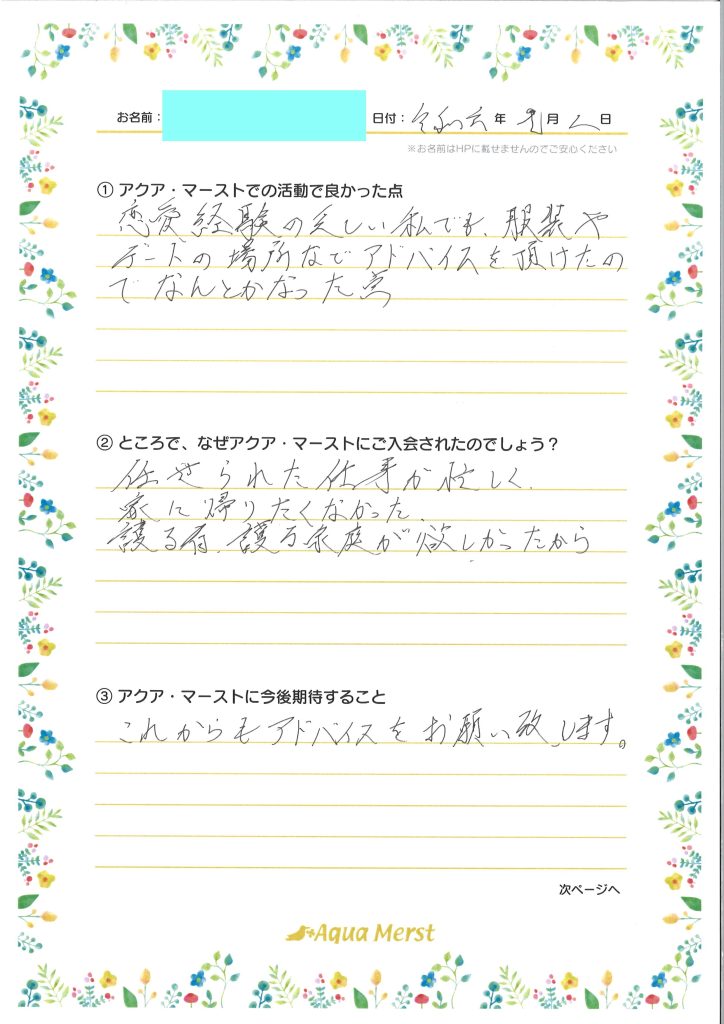 お名前： 日付：令和六年 月 八日
※お名前はHPに載せませんのでご安心ください
① アクア・マーストでの活動で良かった点
恋愛経験の乏しい私でも、服装や
デートの場所などアドバイスを頂けたの
でなんとかなった点
② ところで、なぜアクア・マーストにご入会されたのでしょう？
任せられた仕事が忙しく、
家に帰りたくなかった、
護る者、護る家庭が欲しかったから
③ アクア・マーストに今後期待すること
これからもアドバイスをお願い致します。
次ページへ
Aqua Merst